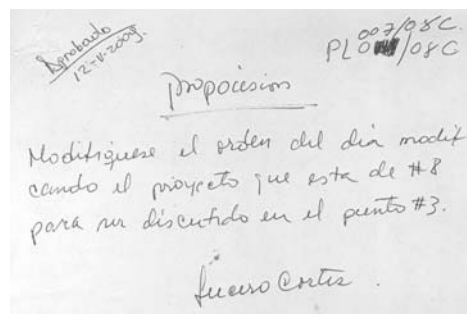 Aprobado
12-V-2009.
007/08C.
PLO /08C
Propocision
Modifiquese el orden del dia modifi
cando el proyecto que esta de #8
para ser discutido en el punto #3.
Lucero Cortes.